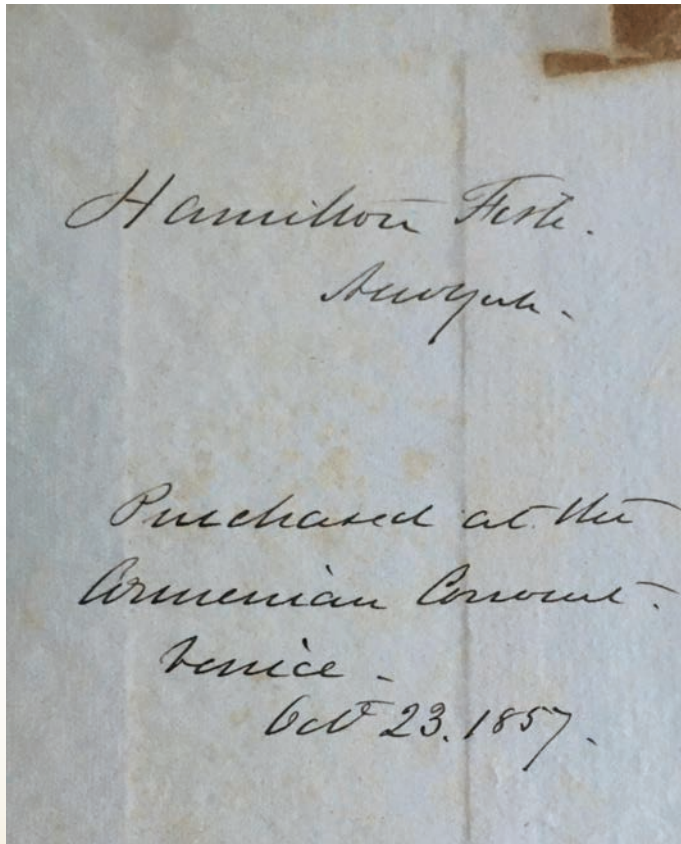 Hamilton Fish.
New York.
Purchased at the
Armenian Convent.
Venice.
Oct 23. 1857.